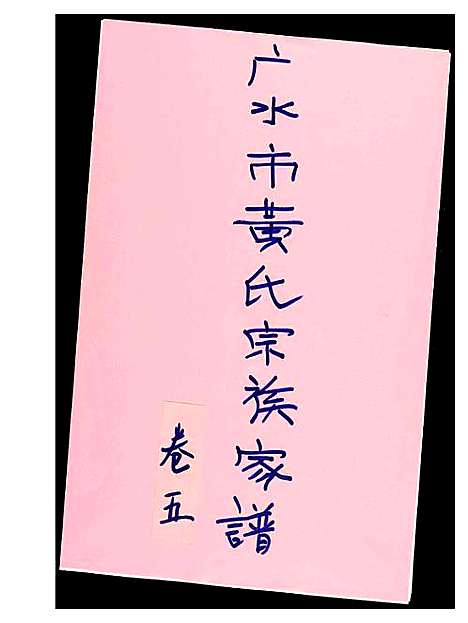 广水市黄氏宗族家譜
卷五